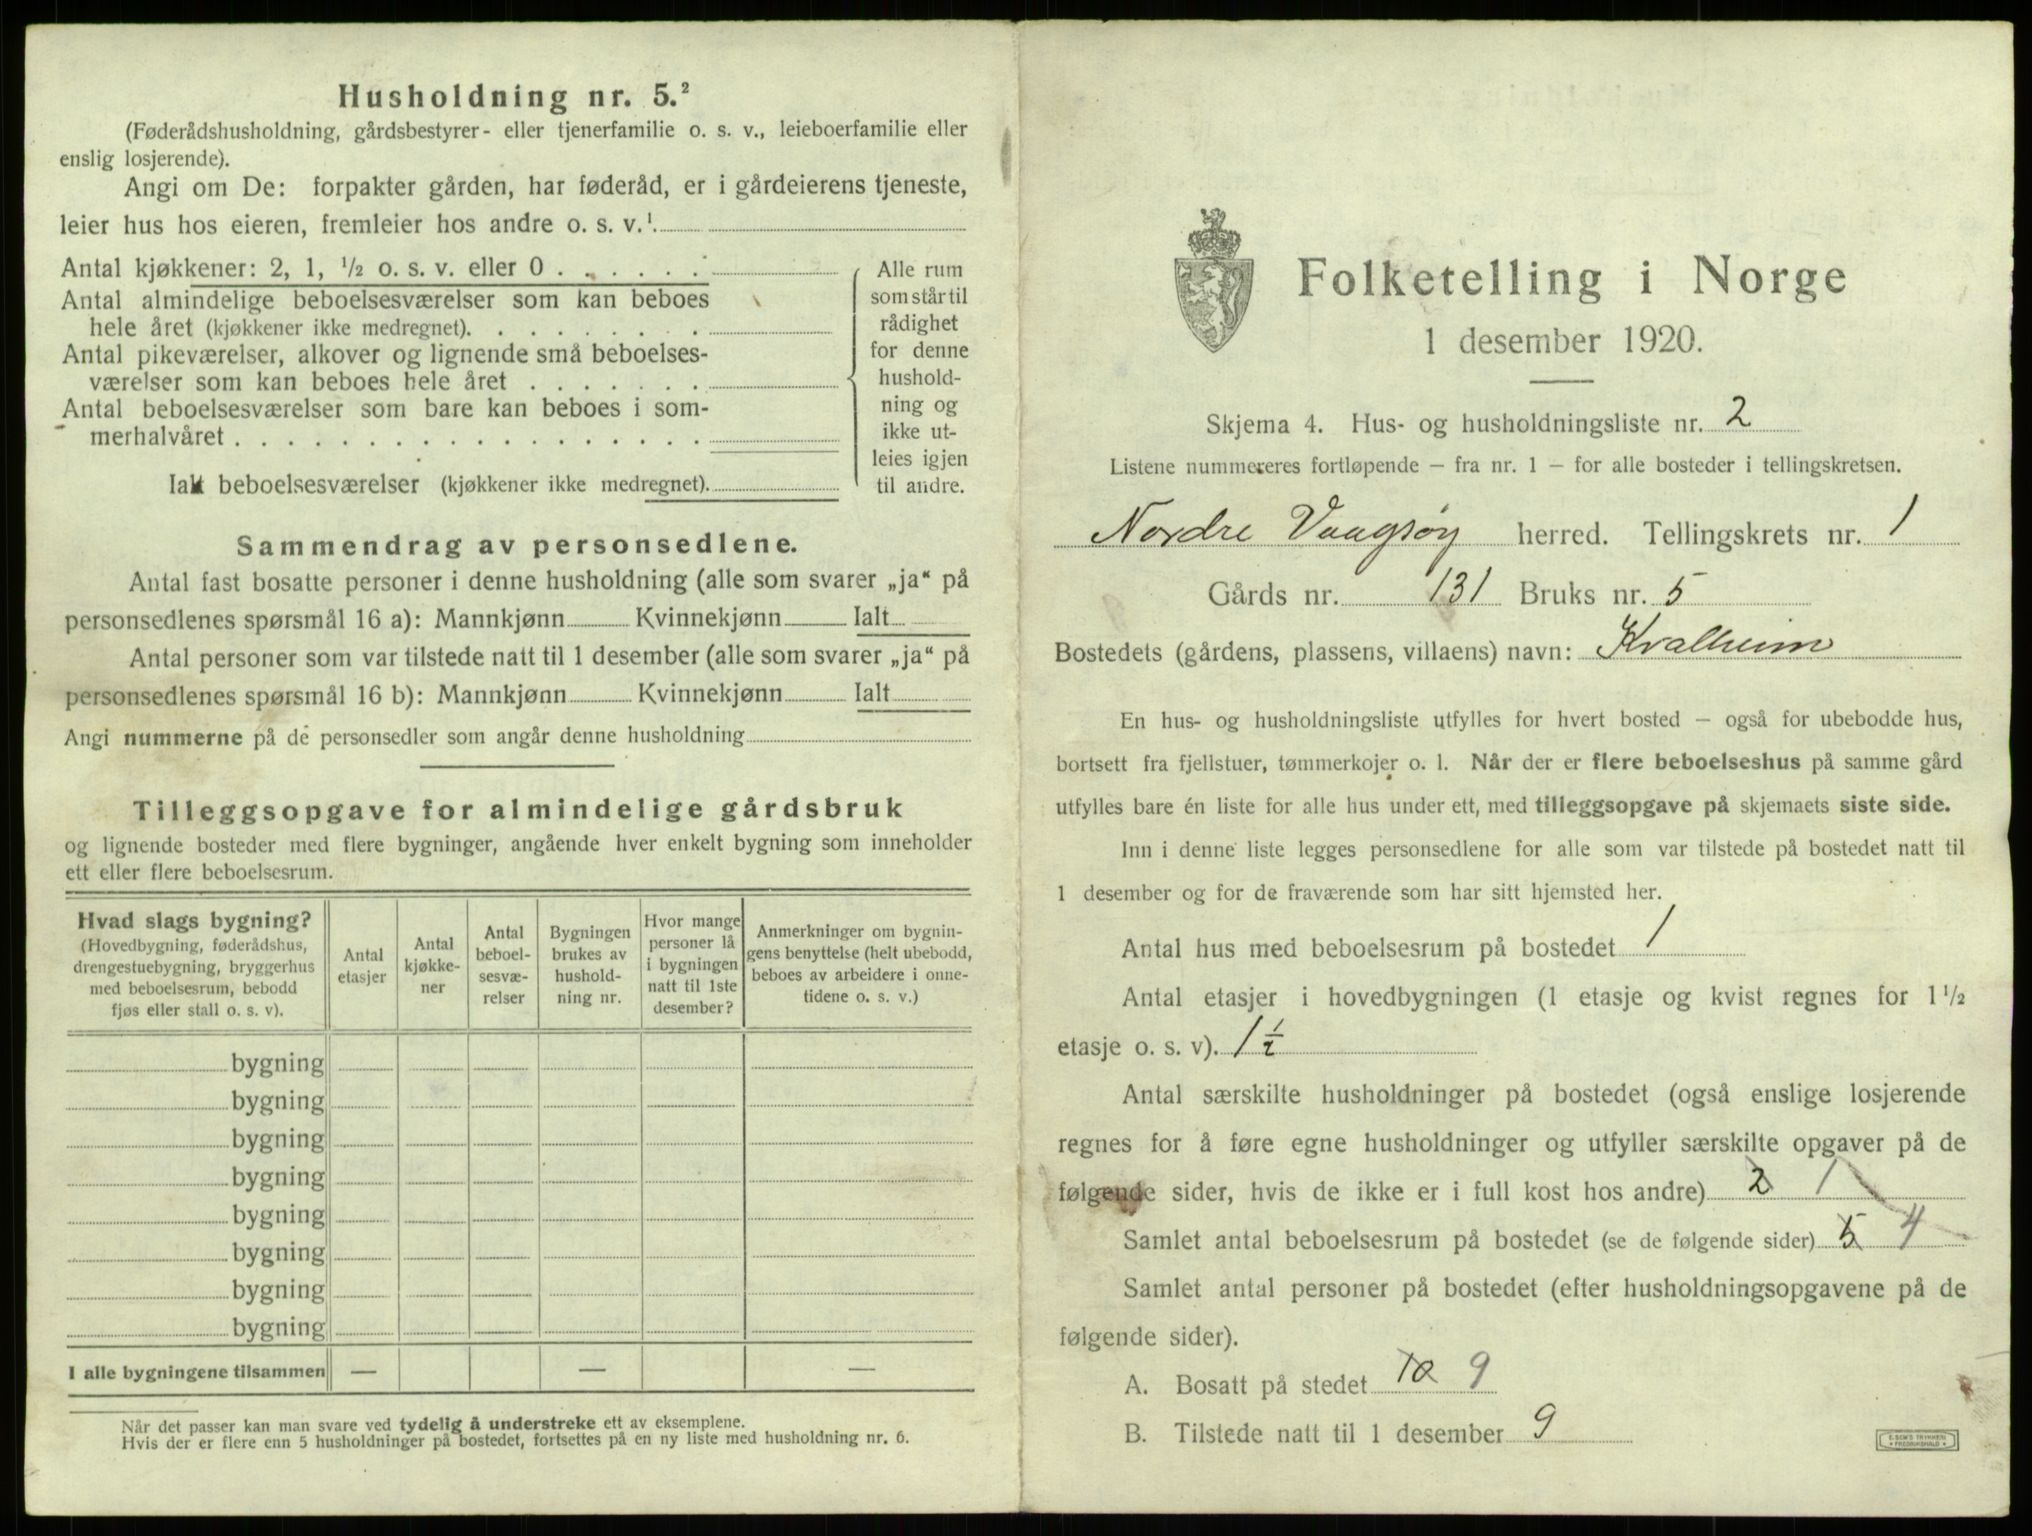 Husholdning nr. 5.²
(Føderådshusholdning, gårdsbestyrer- eller tjenerfamilie o. s. v., leieboerfamilie eller
enslig losjerende).
Angi om De: forpakter gården, har føderåd, er i gårdeierens tjeneste,
leier hus hos eieren, fremleier hos andre o. s. v.¹
Antal kjøkkener: 2, 1, ½ o. s. v. eller 0 . . . . . .
Antal almindelige beboelsesværelser som kan beboes
hele året (kjøkkener ikke medregnet). . . . . . . . .
Antal pikeværelser, alkover og lignende små beboelses-
værelser som kan beboes hele året . . . . . . .
Antal beboelsesværelser som bare kan beboes i som-
merhalvåret . . . . . . . . . . . . . . . . .
Ialt beboelsesværelser (kjøkkener ikke medregnet).
Alle rum
som står til
rådighet
for denne
hushold-
ning og
ikke ut-
leies igjen
til andre.
Sammendrag av personsedlene.
Antal fast bosatte personer i denne husholdning (alle som svarer „ja“ på
personsedlenes spørsmål 16 a): Mannkjønn Kvinnekjønn Ialt
Antal personer som var tilstede natt til 1 desember (alle som svarer „ja“ på
personsedlenes spørsmål 16 b): Mannkjønn Kvinnekjønn Ialt
Angi nummerne på de personsedler som angår denne husholdning
Tilleggsopgave for almindelige gårdsbruk
og lignende bosteder med flere bygninger, angående hver enkelt bygning som inneholder
ett eller flere beboelsesrum.
Hvad slags bygning?
(Hovedbygning, føderådshus,
drengestuebygning, bryggerhus
med beboelsesrum, bebodd
fjøs eller stall o. s. v).
Antal
etasjer
Antal
kjøkke-
ner
Antal
beboel-
sesvæ-
relser
Bygningen
brukes av
hushold-
ning nr.
Hvor mange
personer lå
i bygningen
natt til 1ste
desember?
Anmerkninger om bygnin-
gens benyttelse (helt ubebodd,
beboes av arbeidere i onne-
tidene o. s. v.)
bygning
bygning
bygning
bygning
bygning
bygning
bygning
bygning
I alle bygningene tilsammen — — —
Når det passer kan man svare ved tydelig å understreke ett av eksemplene.
Hvis der er flere enn 5 husholdninger på bostedet, fortsettes på en ny liste med husholdning nr. 6.
Folketelling i Norge
1 desember 1920.
Skjema 4. Hus- og husholdningsliste nr. 2
Listene nummereres fortløpende – fra nr. 1 – for alle bosteder i tellingskretsen.
Nordre Vaagsøy herred. Tellingskrets nr. 1
Gårds nr. 131 Bruks nr. 5
Bostedets (gårdens, plassens, villaens) navn: Kvalheim
En hus- og husholdningsliste utfylles for hvert bosted – også for ubebodde hus,
bortsett fra fjellstuer, tømmerkojer o. l. Når der er flere beboelseshus på samme gård
utfylles bare én liste for alle hus under ett, med tilleggsopgave på skjemaets siste side.
Inn i denne liste legges personsedlene for alle som var tilstede på bostedet natt til
1 desember og for de fraværende som har sitt hjemsted her.
Antal hus med beboelsesrum på bostedet 1
Antal etasjer i hovedbygningen (1 etasje og kvist regnes for 1½
etasje o. s. v). 1 ½
Antal særskilte husholdninger på bostedet (også enslige losjerende
regnes for å føre egne husholdninger og utfyller særskilte opgaver på de
følgende sider, hvis de ikke er i full kost hos andre) 2 1
Samlet antal beboelsesrum på bostedet (se de følgende sider) 5 4
Samlet antal personer på bostedet (efter husholdningsopgavene på de
følgende sider).
A. Bosatt på stedet 10 9
B. Tilstede natt til 1 desember 9
E. SEM'S TRYKKERI
FREDRIKSHALD